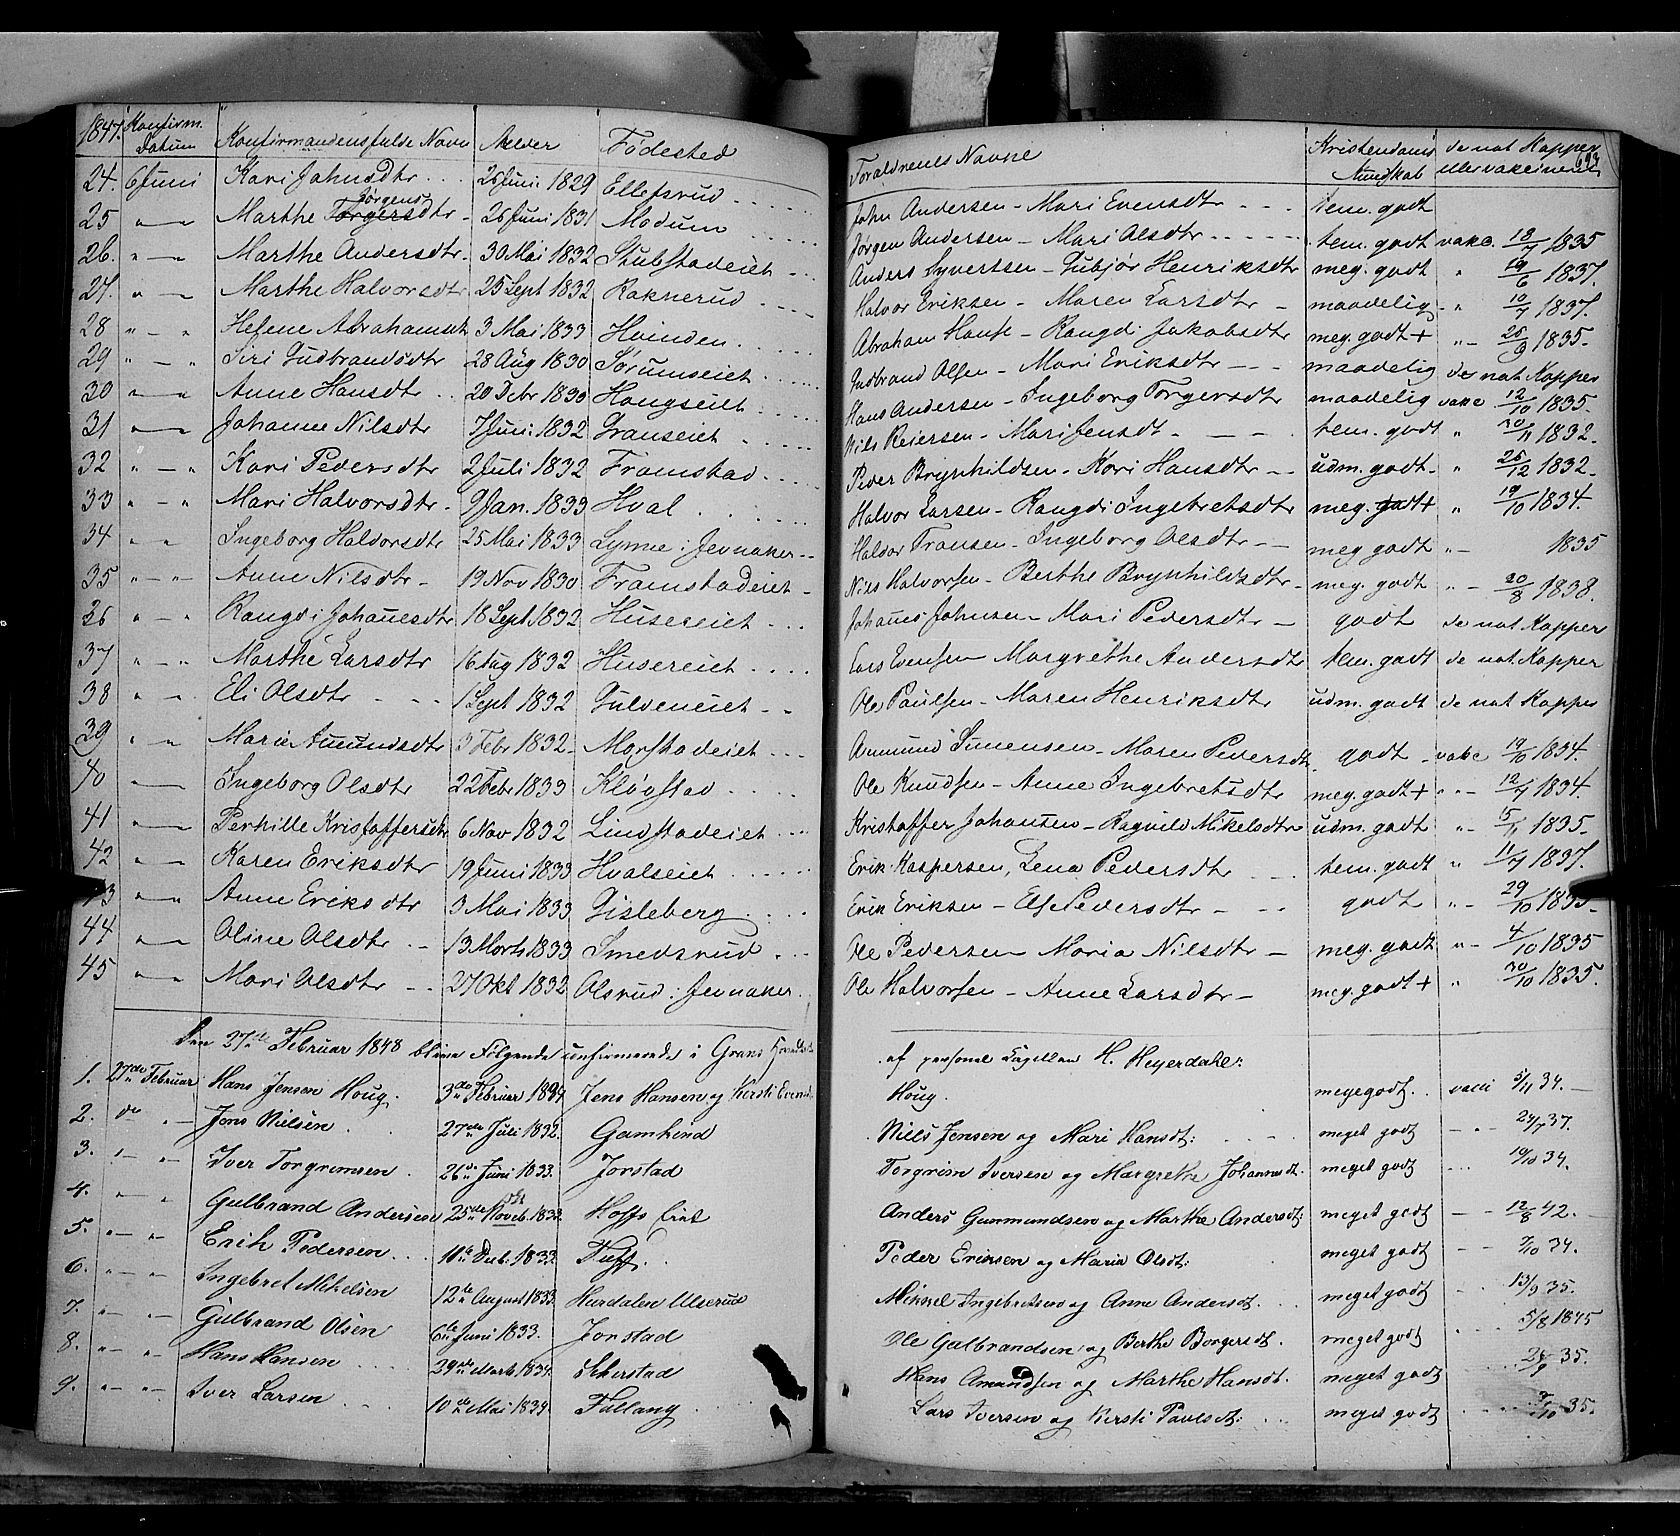 1847. Konfirm. Datum Konfirmandens fulde Navn Alder Födested Forældrenes Navne Kristendoms Kundskab de nat Kopper eller vaccineret 693
24. 6 Juni Kari Johnsdtr .. 26 Juni 1829 Ellefsrud John Andersen - Mari Evensdtr tem. godt
25 " Marthe Torgersdtr Jörgens 26 Juni 1831 Modum Jörgen Andersen - Mari Olsdtr tem. godt vakc. 18/7 1835
26. " Marthe Andersdtr 30 Mai 1832 Stubstadeiet Anders Syvertsen - Gubjör Henriksdtr meg. godt " 19/6 1837.
27. " Marthe Halvorsdtr 25 Sept 1832 Raknerud Halvor Eriksen - Maren Larsdtr maadelig " 10/7 1837.
28 " Helene Abrahamsdt 3 Mai 1833 Hvinden Abraham - Rangdi Jakobsdtr meg. godt + " 26/9 1835
29 " Siri Gudbrandsdtr 28 Aug 1830 Sörumseiet Gudbrand Olsen - Mari Eriksdtr maadelig de nat Kopper
30 " Anne Hansdtr .. 20 Debr 1830 Haugseiet Hans Andersen - Ingeborg Torgersdtr maadelig vakc 12/10 1835.
31 " Johanne Nilsdtr 7 Juni 1832 Granseiet Nils Reiersen - Mari Jensdt tem. godt " 30/11 1832.
32 " Kari Pedersdtr 2 Juli 1832 Framstad Peder Brynhildsen - Kari Hansdtr udm. godt " 26/12 1832
33 " Mari Halvorsdtr 9 Jan. 1833 Hval Halvor Larsen - Rangdi Ingebretsdtr meg. godt + " 19/10 1834.
34 " Ingeborg Halvorsdtr 25 Mai 1833 Lynne i Jevnaker Halvor Fransen - Ingeborg Olsdtr meg godt " 1835
35 " Anne Nilsdtr 19 Nov 1830 Framstadeiet Nils Halvorsen - Berthe Brynhildsdtr meg. godt " 20/8 1838.
36 " Rangdi Johanesdtr 18 Sept 1832 Husereiet Johanes Johnsen - Mari Pedersdtr godt de nat Kopper
37 " Marthe Larsdtr 16 Aug 1832 Husereiet Lars Evensen Margrethe Andersdt tem. godt de nat Kopper
38 " Eli Olsdtr 1 Sept 1832 Guldeneiet Ole Paulsen - Maren Henriksdtr udm. godt de nat Kopper
39 " Marie Amundsdtr 3 Febr 1832 Morstadeiet Ammund Simensen - Maren Pedersdt godt vakc 19/10 1834.
40 " Ingeborg Olsdtr 22 Febr 1833 Klövstad Ole Knudsen - Anne Ingebretsdtr meg. godt + " 12/7 1834.
41 " Pernille Kristoffersdt 6 Nov 1832 Lindstadeiet Kristoffer Johansen - Ragnild Mikelsdtr udm. godt " 15/11 1835
42 " Karen Eriksdtr 19 Juni 1833 Hvalseiet Erik Kaspersen, Lena Pedersdtr tem. godt " 11/7 1837.
43 " Anne Eriksdtr 3 Mai 1833 Gisleberg Erik Eriksen - Else Pedersdtr godt " 29/10 1835
44 " Oline Olsdtr .. 13 Marts 1833 Smedsrud Ole Pedersen - Maria Nilsdtr meg. godt " 4/10 1835
45 " Mari Olsdtr 27 Okt 1832 Olsrud i Jevnaker Ole Halvorsen - Anne Larsdtr meg. godt + " 30/10 1835
Den 27de Februar 1848 bleve Fölgende confirmerede i Grans af personel Capellan H. Heyerdahl:
1. 27de Februar Hans Jensen Houg. 3de Februar 1834 Jens Hansen og Kirsti Evensd. Houg. megegodt. vacci 5/11 34.
2. do " Jens Nielsen 27de Juli 1832. Gamkind Niels Jensen og Mari Hansdt: meget godt 24/7 37.
3. " Iver Torgrimsen 26de Juni 1833. Jorstad Torgrim Iversen og Margrethe Johannesdt. meget godt 19/10 34.
4. " Gulbrand Andersen 25de Noveb. 1832 Hoffs Eiet Anders Gunmundsen og Marthe Andersdt: meget godt 12/8 42.
5. " Erik Pedersen 10de Deb: 1833 Tuft Peder Ericksen og Maria Olsdt: meget godt 7/10 34.
6. " Ingebret Mikelsen 12te August 1833. Hurdalen Ulserud Mikkel Ingebretsen og Anne Andersdt. meget godt 13/9 35.
7. " Gulbrand Olsen 6te Juni 1833. Jorstad Ole Gulbrandsen og Berthe Borgersdt. meget godt 5/8 1845
8. " Hans Hansen 29de Marts 1834. Ekerstad Hans Amundsen og Marthe Hansdt. meget godt 35.
9. " Iver Larsen 10de Mai 1834. Fallang Lars Iversen og Kirsti Paulsdt: meget godt 35.